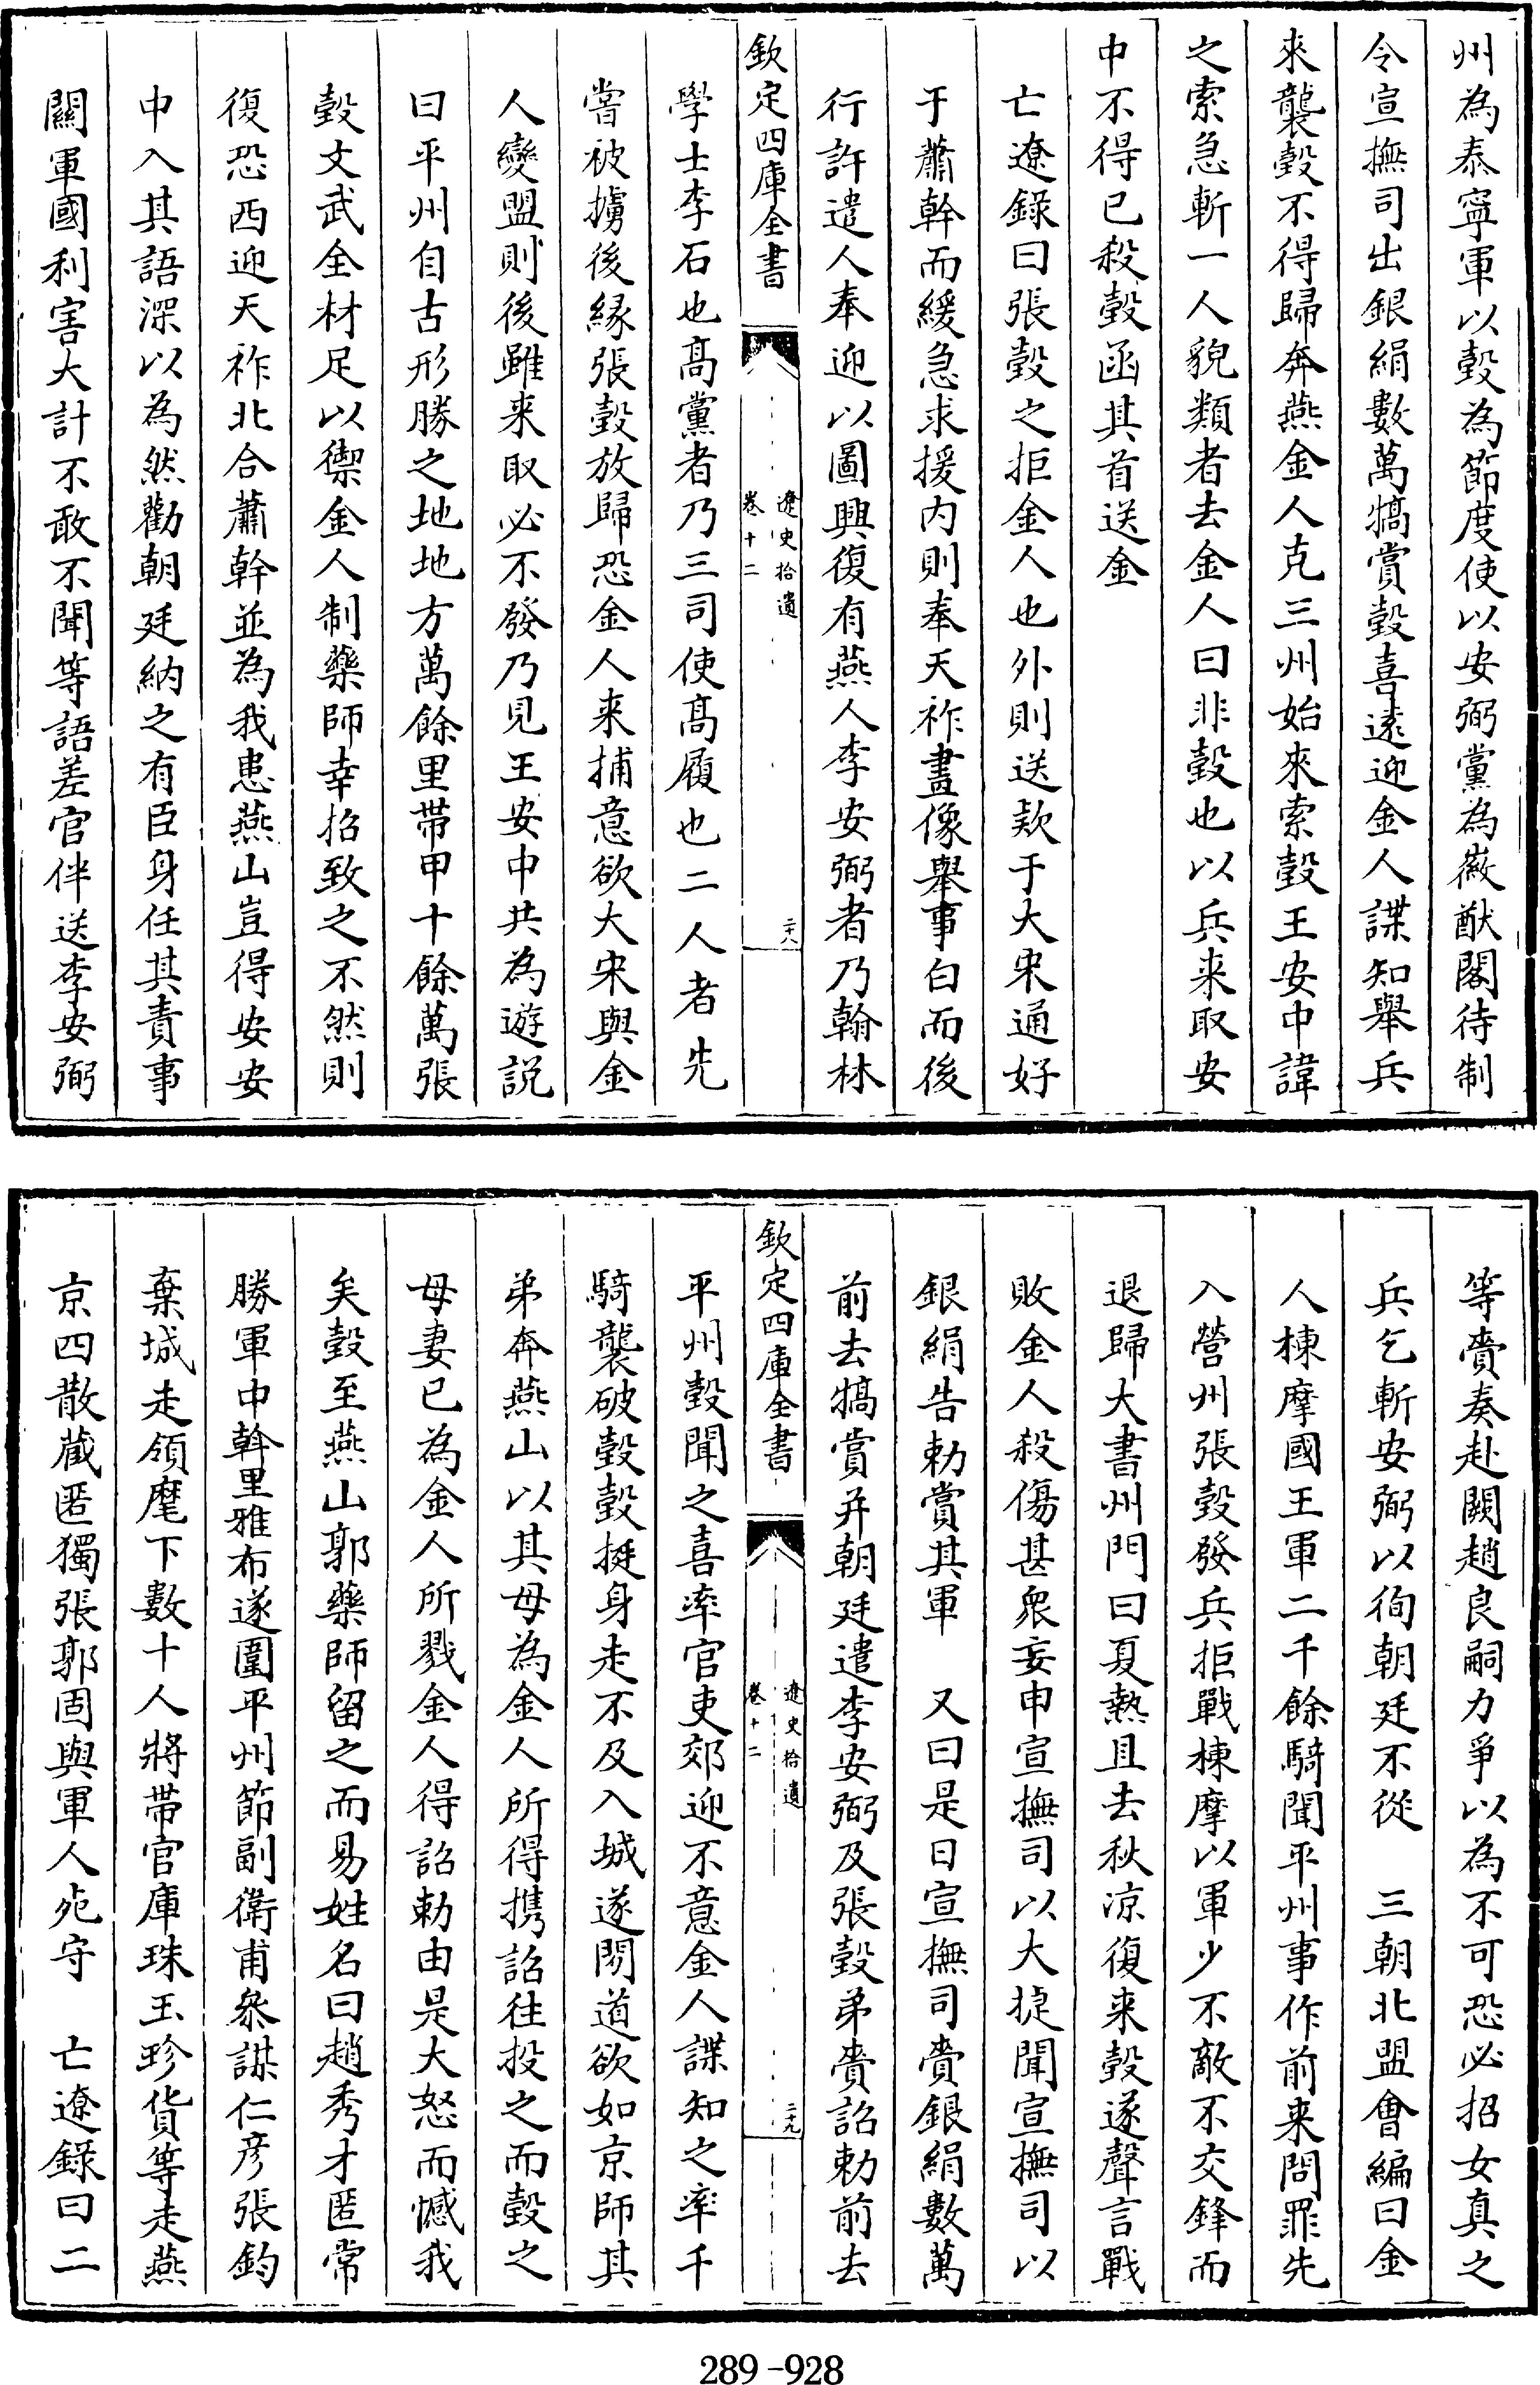 州為泰寧軍以瑴為節度使以安弼黨為徽猷閣待制
令宣撫司出銀絹數萬犒賞瑴喜遠迎金人諜知舉兵
來襲瑴不得歸奔燕金人克三州始來索瑴王安中諱
之索急斬一人貌類者去金人曰非瑴也以兵来取安
中不得已殺瑴函其首送金
亡遼錄曰張瑴之拒金人也外則送款于大宋通好
于蕭幹而緩急求援内則奉天祚畫像舉事白而後
行許遣人奉迎以圖興復有燕人李安弼者乃翰林
欽定四庫全書
遼史拾遺
卷十二
二十八
學士李石也髙黨者乃三司使髙履也二人者先
嘗被擄後緣張瑴放歸恐金人来捕意欲大宋與金
人變盟則後雖来取必不發乃見王安中共為遊説
曰平州自古形勝之地地方萬餘里帶甲十餘萬張
瑴文武全材足以禦金人制藥師幸招致之不然則
復恐西迎天祚北合蕭幹並為我患燕山豈得安安
中入其語深以為然勸朝廷納之有臣身任其責事
關軍國利害大計不敢不聞等語差官伴送李安弼
等賫奏赴闕趙良嗣力爭以為不可恐必招女真之
兵乞斬安弼以徇朝廷不從 三朝北盟會編曰金
人棟摩國王軍二千餘騎聞平州事作前来問罪先
入營州張瑴發兵拒戰棟摩以軍少不敵不交鋒而
退歸大書州門曰夏熱且去秋凉復来瑴遂聲言戰
敗金人殺傷甚衆妄申宣撫司以大捷聞宣撫司以
銀絹告勅賞其軍 又曰是日宣撫司賫銀絹數萬
前去犒賞并朝廷遣李安弼及張瑴弟賫詔勅前去
欽定四庫全書
遼史拾遺
卷十二
二十九
平州瑴聞之喜率官吏郊迎不意金人諜知之率千
騎襲破瑴瑴挺身走不及入城遂間道欲如京師其
弟奔燕山以其母為金人所得携詔往投之而瑴之
母妻已為金人所戮金人得詔勅由是大怒而憾我
矣瑴至燕山郭藥師留之而易姓名曰趙秀才匿常
勝軍中斡里雅布遂圍平州節副衛甫叅謀仁彦張鈞
棄城走領麾下數十人將帶官庫珠玉珍貨等走燕
京四散蔵匿獨張郭固與軍人死守 亡遼錄曰二
289-928